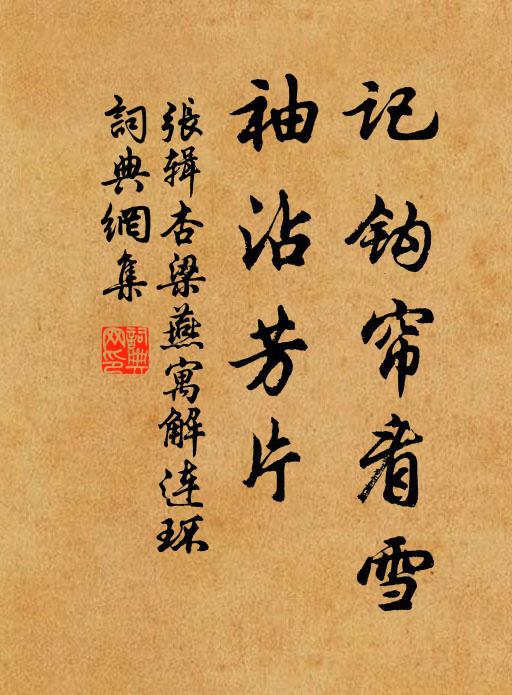 记钩帘看雪
袖沾芳片
張辑杏梁燕寓解连环
詞典網集
詞典网印